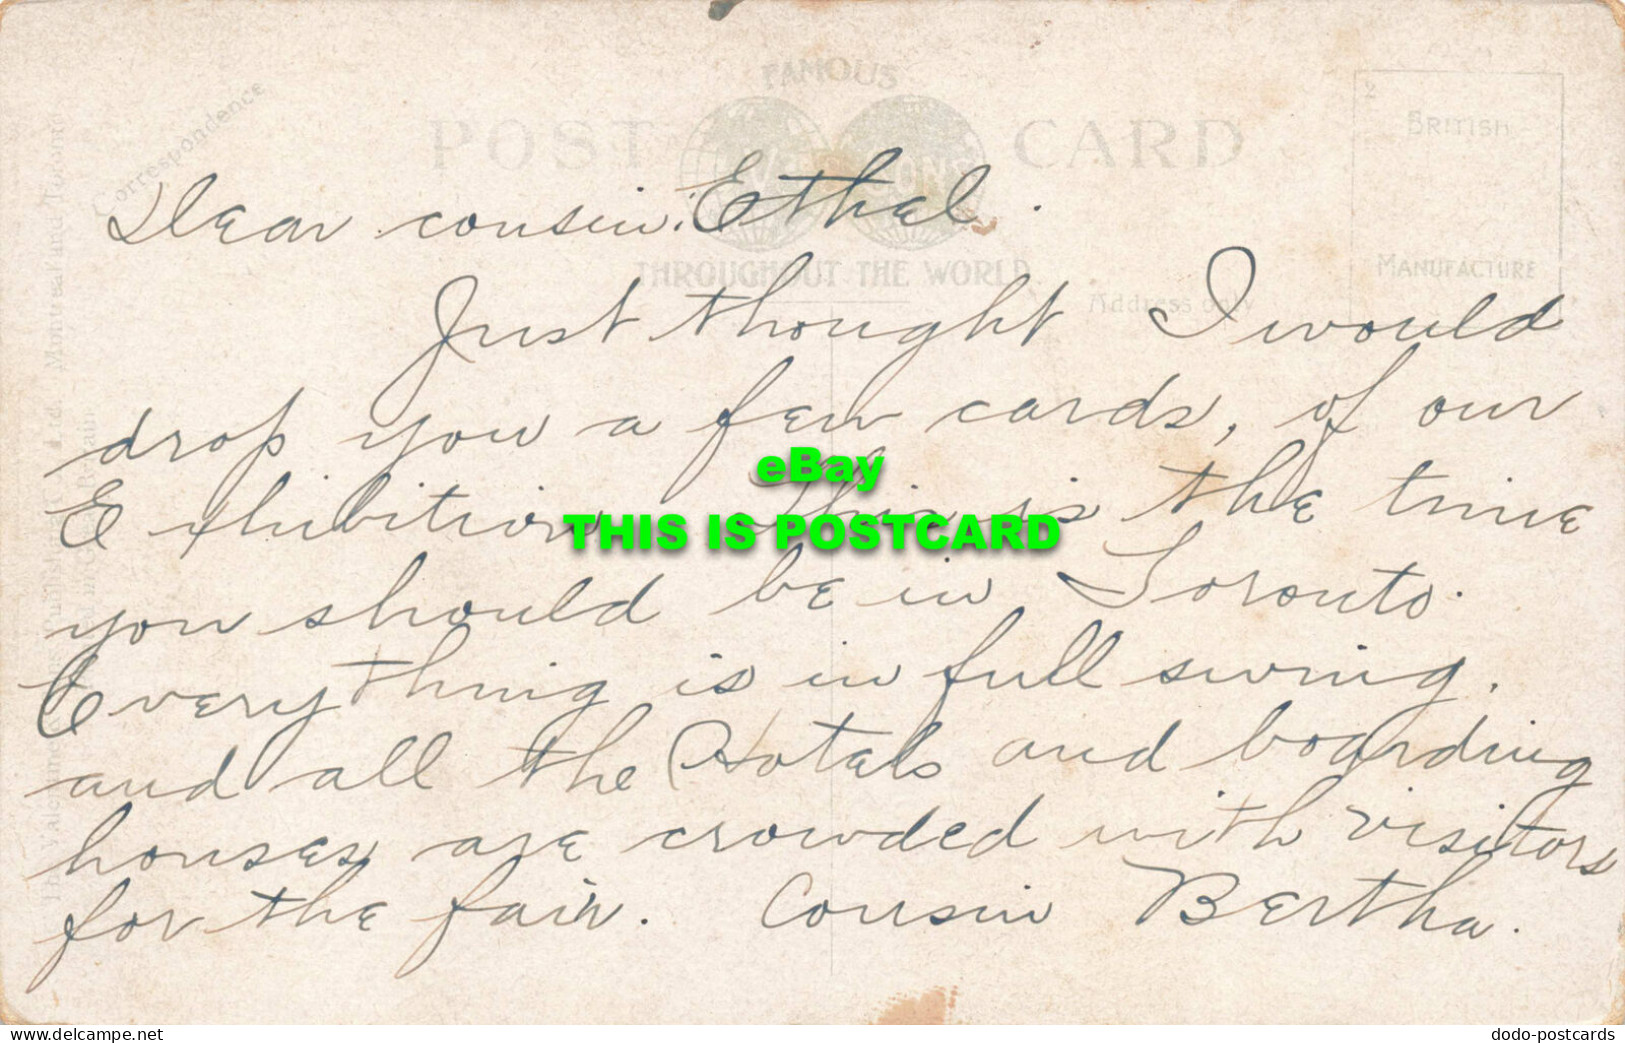 FAMOUS
POST CARD
THROUGHOUT THE WORLD
Correspondence
Address only
BRITISH
MANUFACTURE
Dear cousin: Ethal.
Just thought I would
drop you a few cards, of our
Exhibition This is the time
you should be in Toronto.
Everything is in full swing.
and all the Hotals and boarding
houses are crowded with visitors
for the fair. Cousin Bertha.
Montreal and Toronto
eBay
THIS IS POSTCARD
https://www.delcampe.net
dodo-postcards